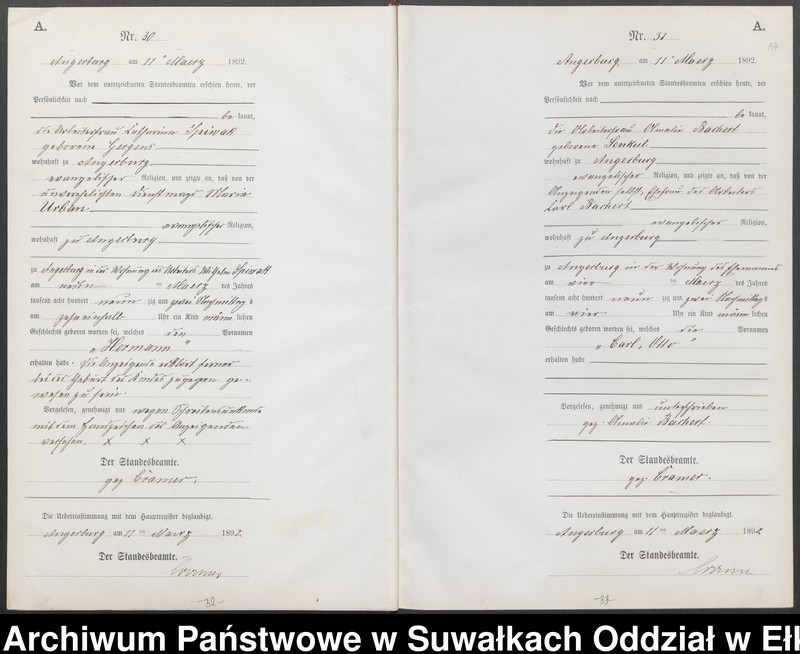 A.
Nr. 30
Angerburg am 11ᵗ Maerz 1892.
Vor dem unterzeichneten Standesbeamten erschien heute, der
Persönlichkeit nach
be kannt,
die Arbeiterfrau Catharine Spiwak
geborene Gorgens
wohnhaft zu Angerburg
evangelischer Religion, und zeigte an, daß von der
unverehelichten Dienstmagd Marie
Urban
evangelischer Religion,
wohnhaft zu Angerburg
zu Angerburg in der Wohnung des Arbeiters Wilhelm Spiwak
am neun ten Maerz des Jahres
tausend acht hundert neun zig und zwei Nachmittags
um zehn einhalb Uhr ein Kind männ lichen
Geschlechts geboren worden sei, welches den Vornamen
„Hermann"
erhalten habe. Die Anzeigende erklärt ferner
bei der Geburt des Kindes zugegen ge-
wesen zu sein.
Vorgelesen, genehmigt und wegen Schreibensunkunde
mit dem Handzeichen der Anzeigenden
versehen. X X X
Der Standesbeamte.
gez. Cramer.
Die Uebereinstimmung mit dem Hauptregister beglaubigt.
Angerburg am 11 ten Maerz 1892.
Der Standesbeamte.
Cramer
32
A.
17
Nr. 31
Angerburg am 11ᵗ Maerz 1892.
Vor dem unterzeichneten Standesbeamten erschien heute, der
Persönlichkeit nach
be kannt,
die Arbeiterfrau Amalie Bachert
geborene Senkul
wohnhaft zu Angerburg
evangelischer Religion, und zeigte an, daß von der
Anzeigenden selbst, Ehefrau des Arbeiters
Carl Bachert
evangelischer Religion,
wohnhaft zu Angerburg
zu Angerburg in der Wohnung des Ehemannes
am vier ten Maerz des Jahres
tausend acht hundert neun zig und zwei Nachmittags
um vier Uhr ein Kind männ lichen
Geschlechts geboren worden sei, welches die Vornamen
„Carl, Otto"
erhalten habe
Vorgelesen, genehmigt und unterschrieben
gez. Amalie Bachert.
Der Standesbeamte.
gez. Cramer.
Die Uebereinstimmung mit dem Hauptregister beglaubigt.
Angerburg am 11 ten Maerz 1892
Der Standesbeamte.
Cramer
33
Archiwum Państwowe w Suwałkach Oddział w Ełk